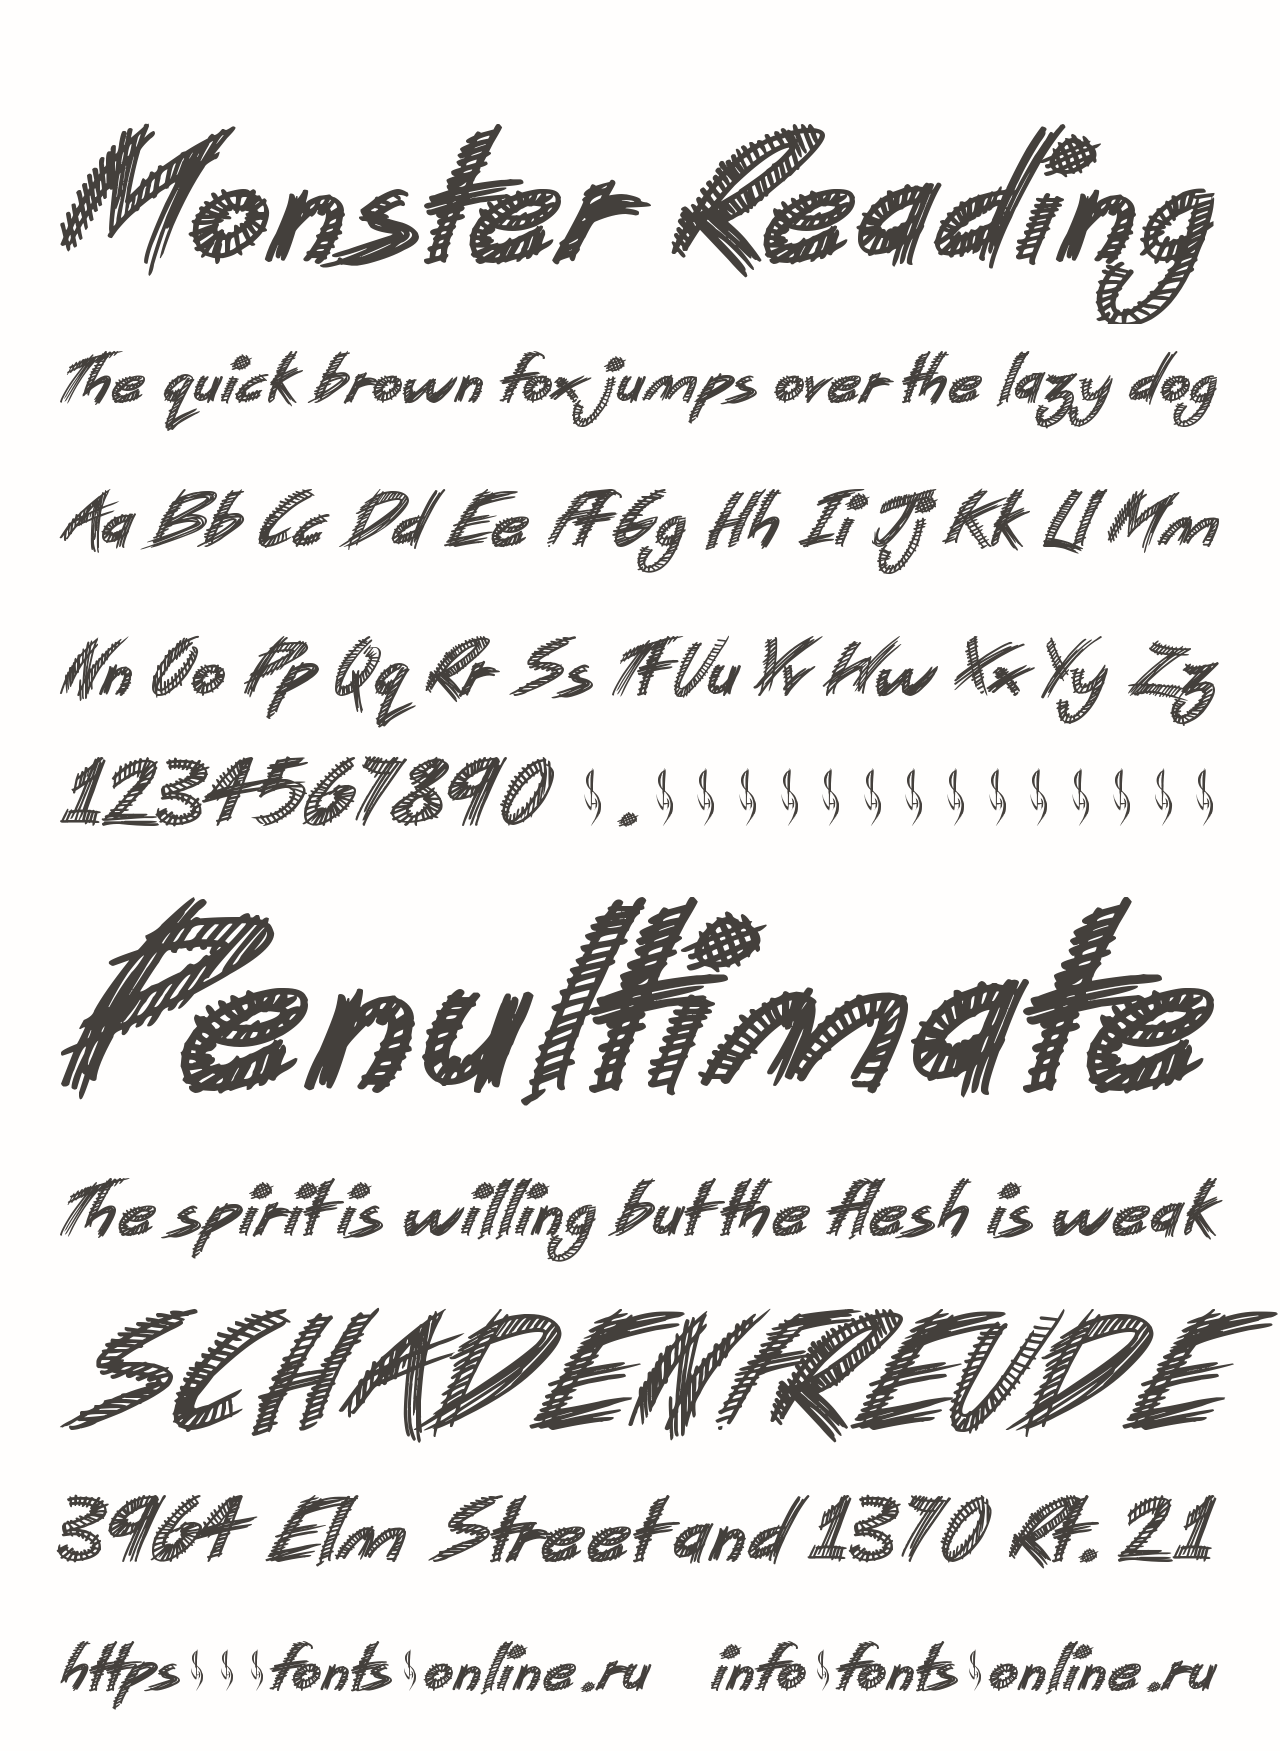 Monster Reading
The quick brown fox jumps over the lazy dog
Aa Bb Cc Dd Ee Ff Gg Hh Ii Jj Kk Ll Mm
Nn Oo Pp Qq Rr Ss Tt Uu Vv Ww Xx Yy Zz
1234567890 .
Penultimate
The spirit is willing but the flesh is weak
SCHADENFREUDE
3964 Elm Street and 1370 Rt. 21
https fonts online.ru info fonts online.ru